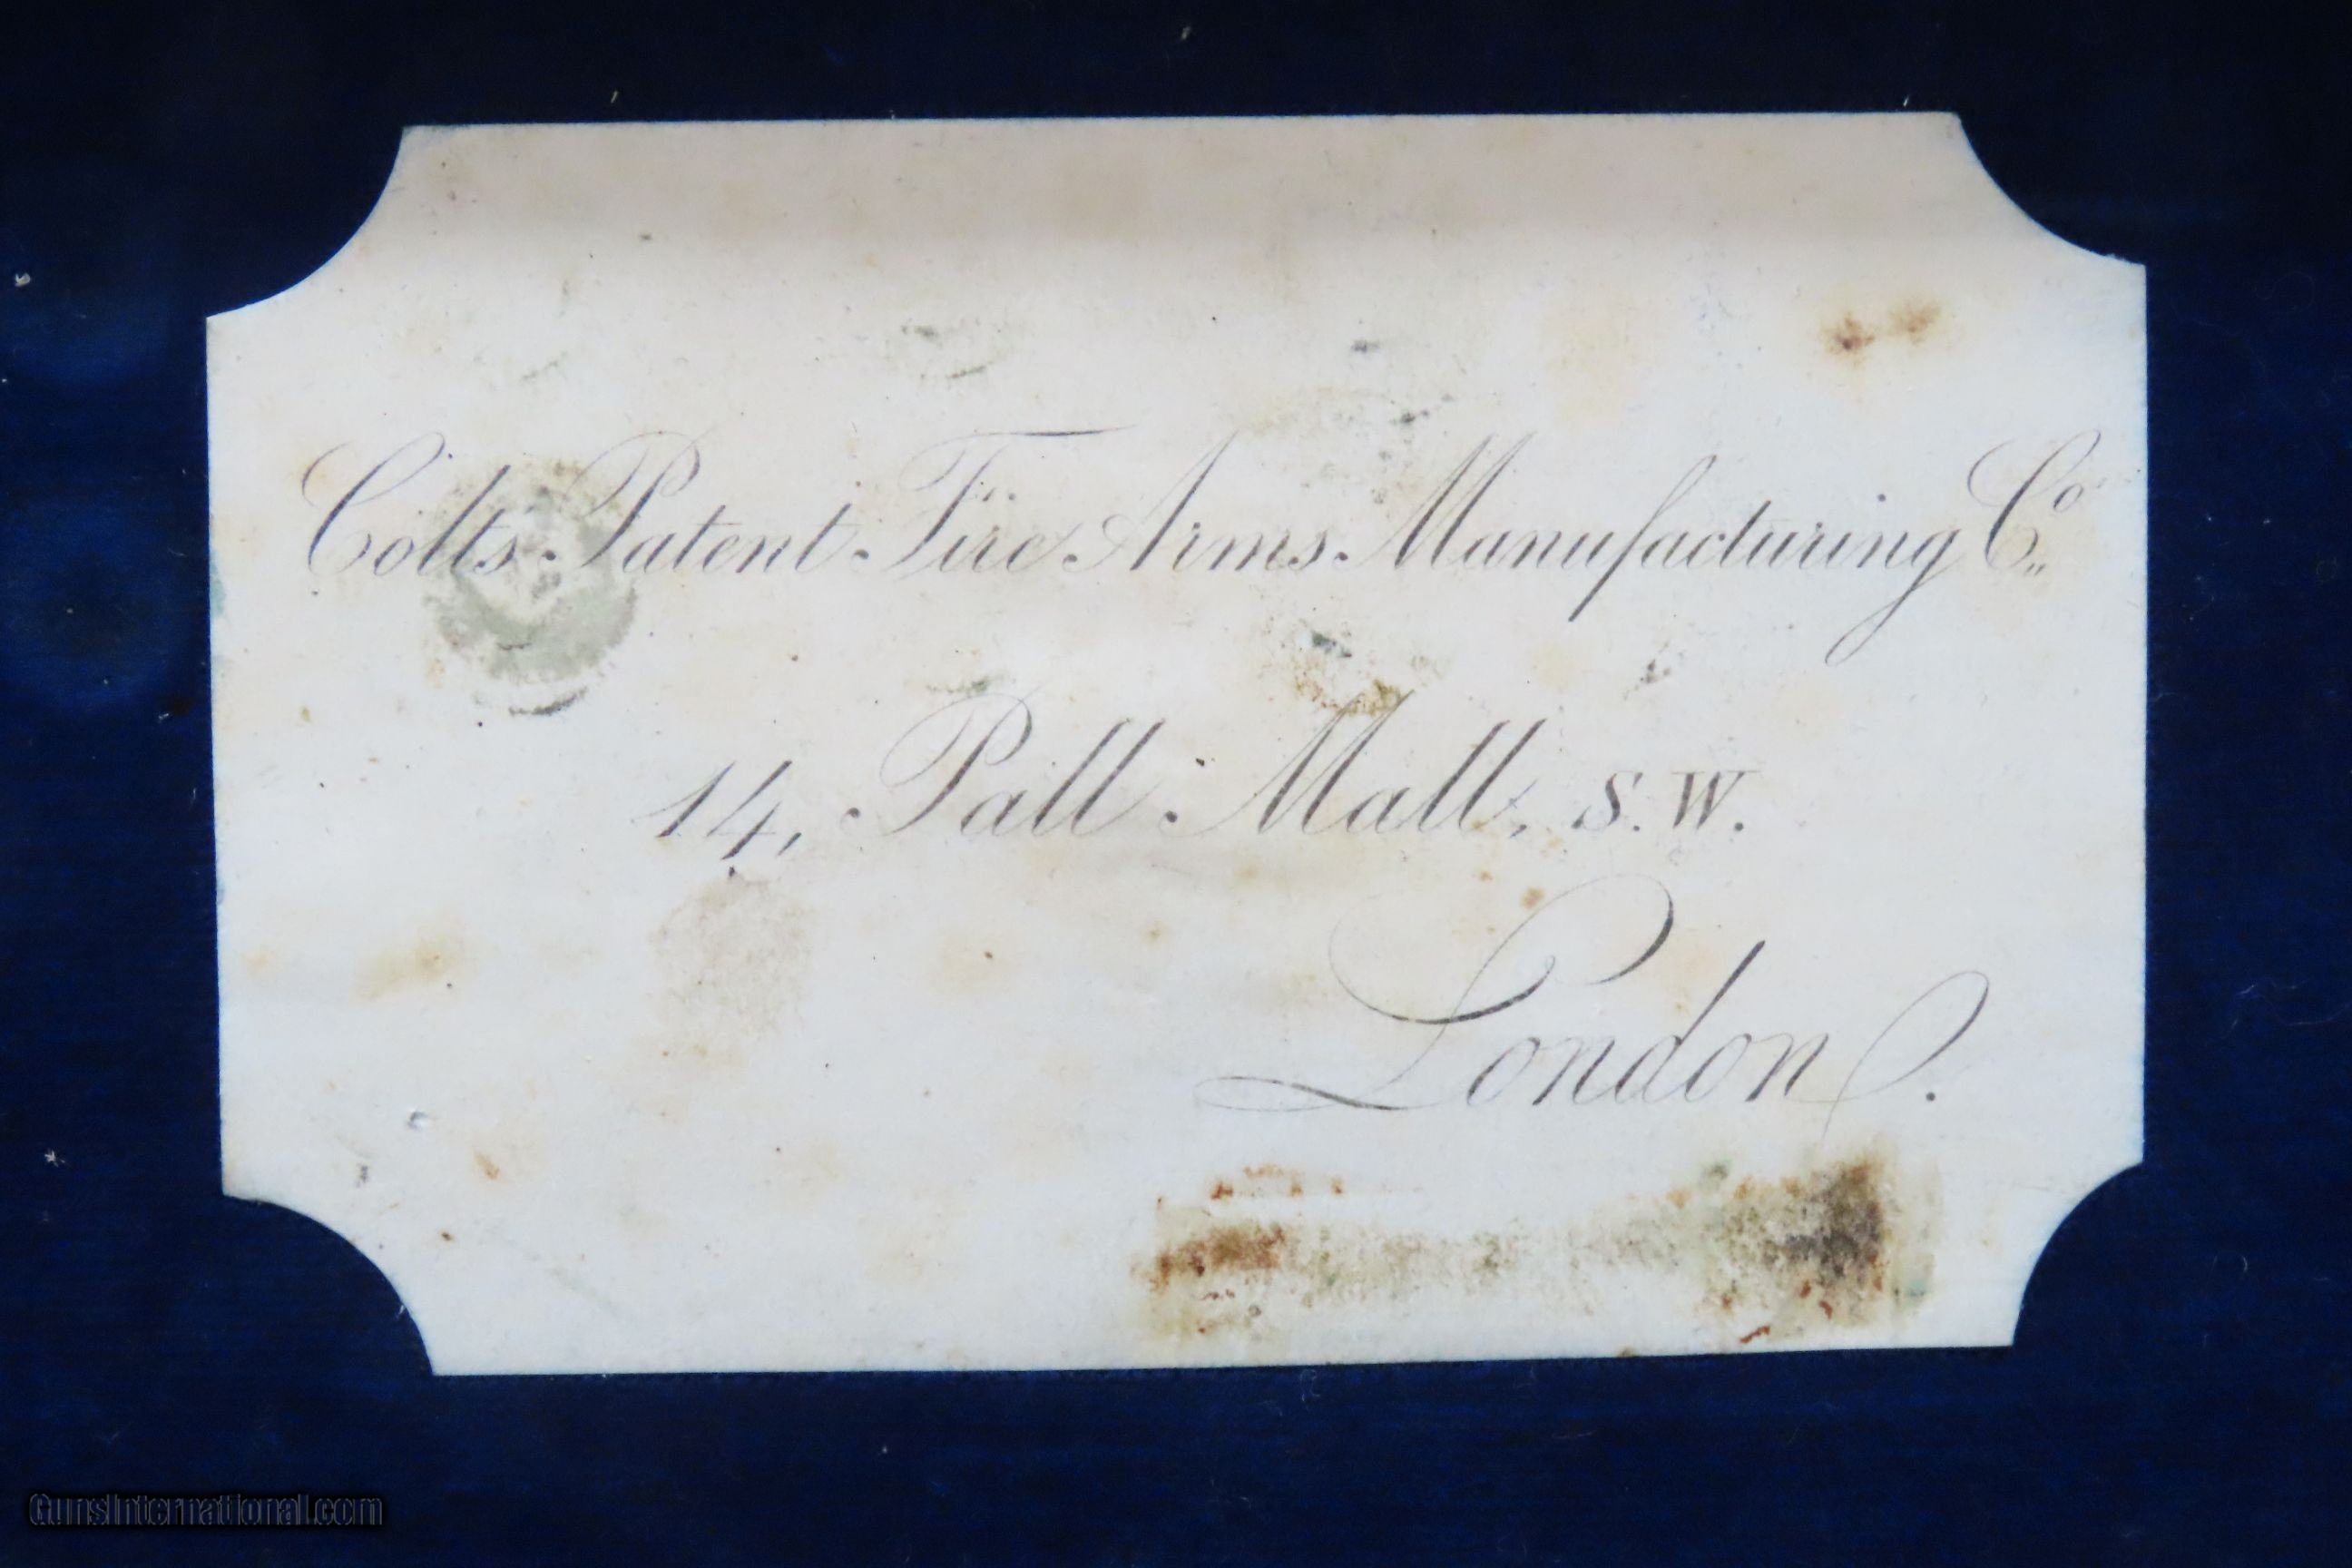 Colts Patent Fire Arms Manufacturing Co.
14, Pall Mall, S.W.
London.
GunsInternational.com